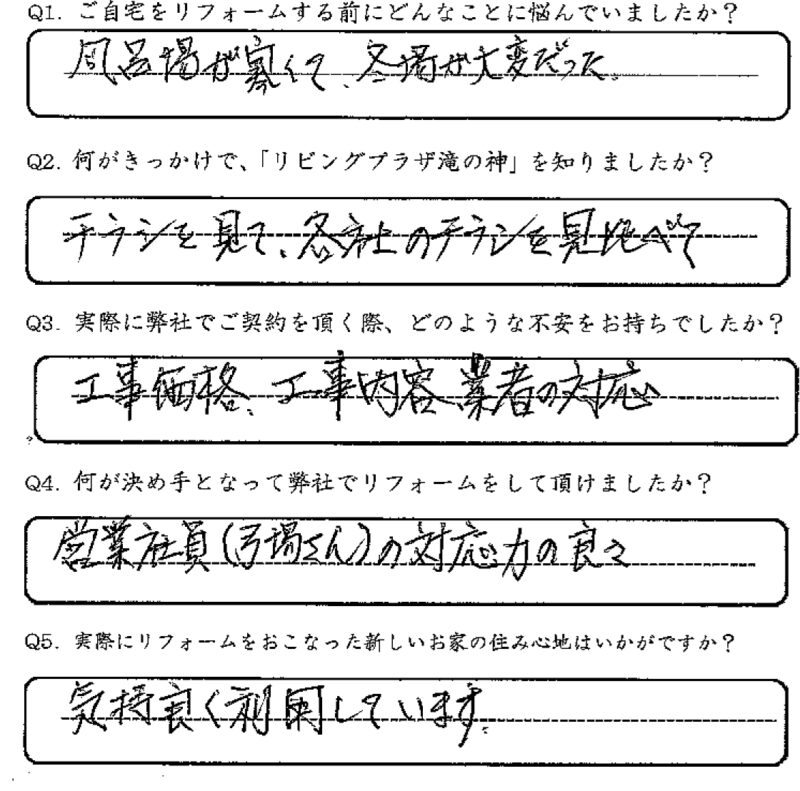 Q1. ご自宅をリフォームする前にどんなことに悩んでいましたか？
風呂場が寒くて、冬場が大変だった。
Q2. 何がきっかけで、「リビングプラザ滝の神」を知りましたか？
チラシを見て、各社のチラシを見比べて
Q3. 実際に弊社でご契約を頂く際、どのような不安をお持ちでしたか？
工事価格、工事内容、業者の対応
Q4. 何が決め手となって弊社でリフォームをして頂けましたか？
営業社員(弓場さん)の対応力の良さ
Q5. 実際にリフォームをおこなった新しいお家の住み心地はいかがですか？
気持良く利用しています。